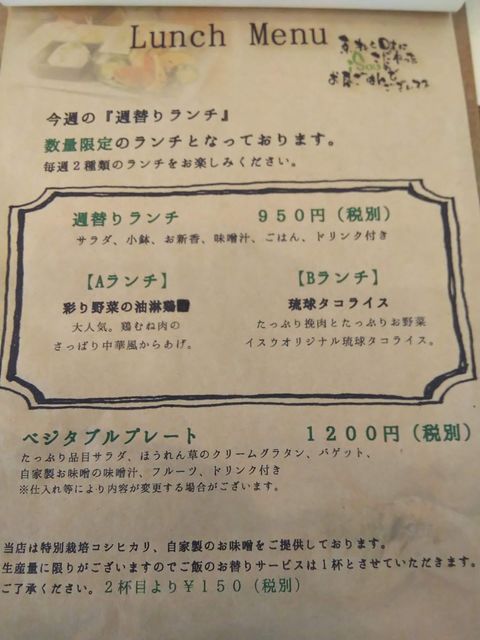 Lunch Menu
今週の『週替りランチ』
数量限定のランチとなっております。
毎週２種類のランチをお楽しみください。
週替りランチ　９５０円（税別）
サラダ、小鉢、お新香、味噌汁、ごはん、ドリンク付き
【Aランチ】
彩り野菜の油淋鶏
大人気。鶏むね肉の
さっぱり中華風からあげ。
【Bランチ】
琉球タコライス
たっぷり挽肉とたっぷりお野菜
イスウオリジナル琉球タコライス。
ベジタブルプレート　１２００円（税別）
たっぷり品目サラダ、ほうれん草のクリームグラタン、バゲット、
自家製お味噌の味噌汁、フルーツ、ドリンク付き
※仕入れ等により内容が変更する場合がございます。
当店は特別栽培コシヒカリ、自家製のお味噌をご提供しております。
生産量に限りがございますのでご飯のお替りサービスは１杯とさせていただきます。
ご了承ください。２杯目より￥１５０（税別）